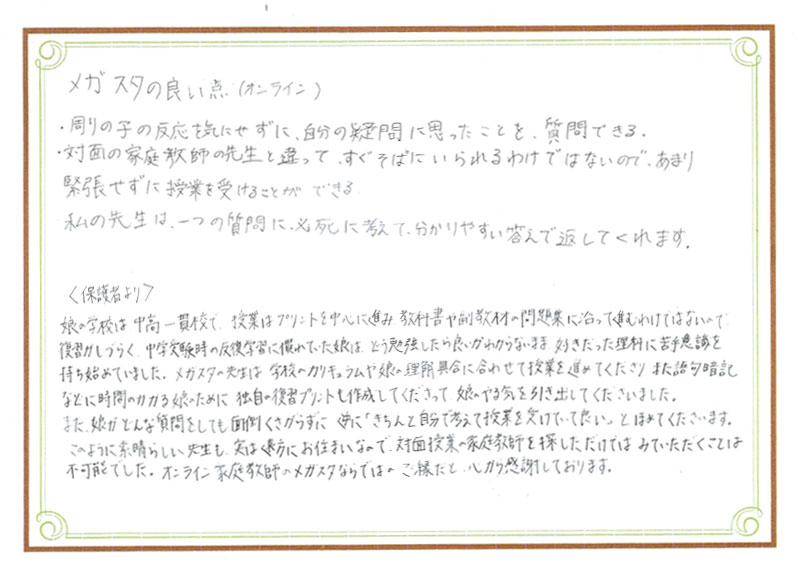 メガスタの良い点(オンライン)
・周りの子の反応を気にせずに、自分の疑問に思ったことを、質問できる。
・対面の家庭教師の先生と違って、すぐそばにいられるわけではないので、あまり
緊張せずに授業を受けることができる
私の先生は、一つの質問に、必死に考えて、分かりやすい答えで返してくれます。
〈保護者より〉
娘の学校は中高一貫校で、授業はプリントを中心に進み 教科書や副教材の問題集に沿って進むわけではないので
復習がしづらく、中学受験時の反復学習に慣れていた娘は、どう勉強したら良いかわからないまま 好きだった理科に苦手意識を
持ち始めていました。メガスタの先生は 学校のカリキュラムや娘の理解具合に合わせて授業を進めてくださり また語句暗記
などに時間のかかる娘のために 独自の復習プリントも作成してくださって、娘のやる気を引き出してくださいました。
また、娘がどんな質問をしても面倒くさがらずに 「きちんと自分で考えて授業を受けていて良い」とほめてくださいます。
このように素晴らしい先生も、実は遠方にお住まいなので、対面授業の家庭教師を探しただけでは みていただくことは
不可能でした。オンライン家庭教師のメガスタならではのご縁だと、心から感謝しております。